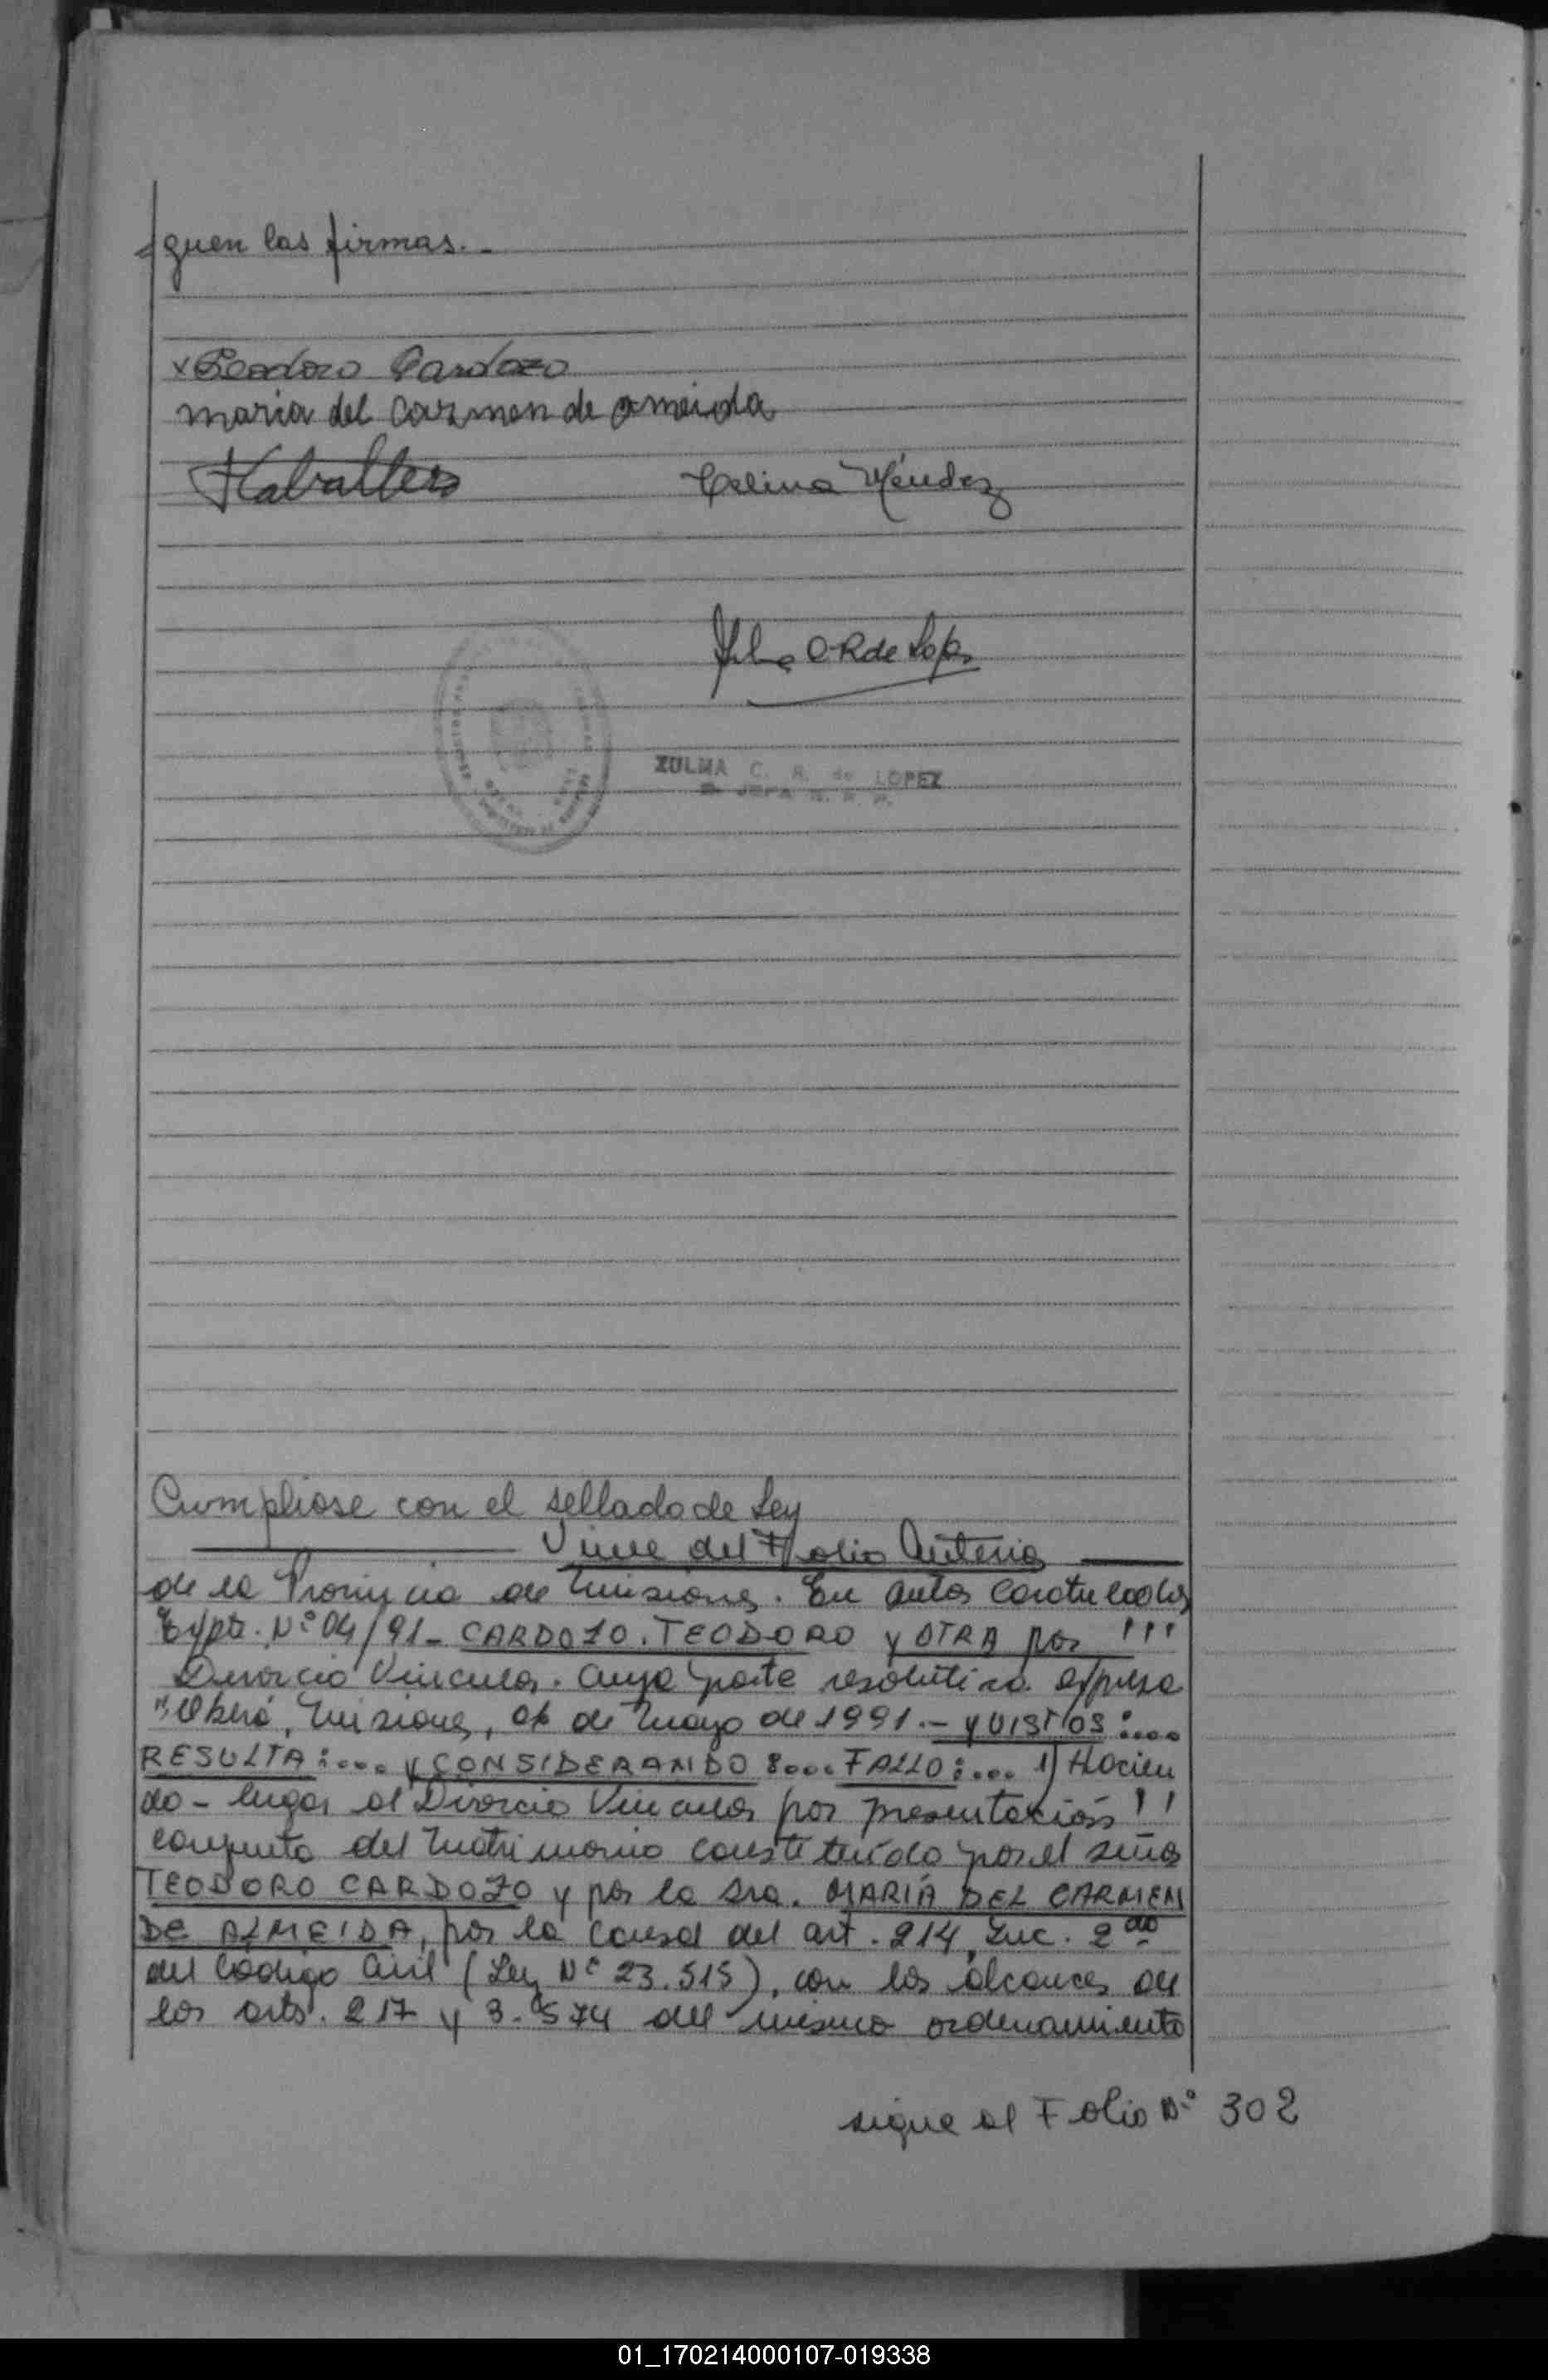 guen las firmas.-
x Teodoro Cardozo
maria del carmen de ameida
Kaballero
Celina Méndez
C R de Lopez
ZULMA C. R. de LOPEZ
JEFA
Cumpliose con el sellado de Ley
Viene del Folio Anterior
de la Provincia de Misiones. En autos caratulados
Expte. Nº 04/91- CARDOZO, TEODORO y OTRA por '''
Divorcio Vincular. cuya parte resolutiva expresa
"Oberá, Misiones, 06 de Mayo de 1991.- y VISTOS:....
RESULTA:.... y CONSIDERANDO:.... FALLO:.... 1) Hacien
do- lugar al Divorcio Vincular por presentación ''
conjunta del Matrimonio constituído por el señor
TEODORO CARDOZO y por la Sra. MARIA DEL CARMEN
DE ALMEIDA, por la causal del art. 214, Inc. 2do
del Código Civil (Ley Nº 23.515), con los alcances de
los arts. 217 y 3.574 del mismo ordenamiento
sigue al Folio Nº 302
01_170214000107-019338